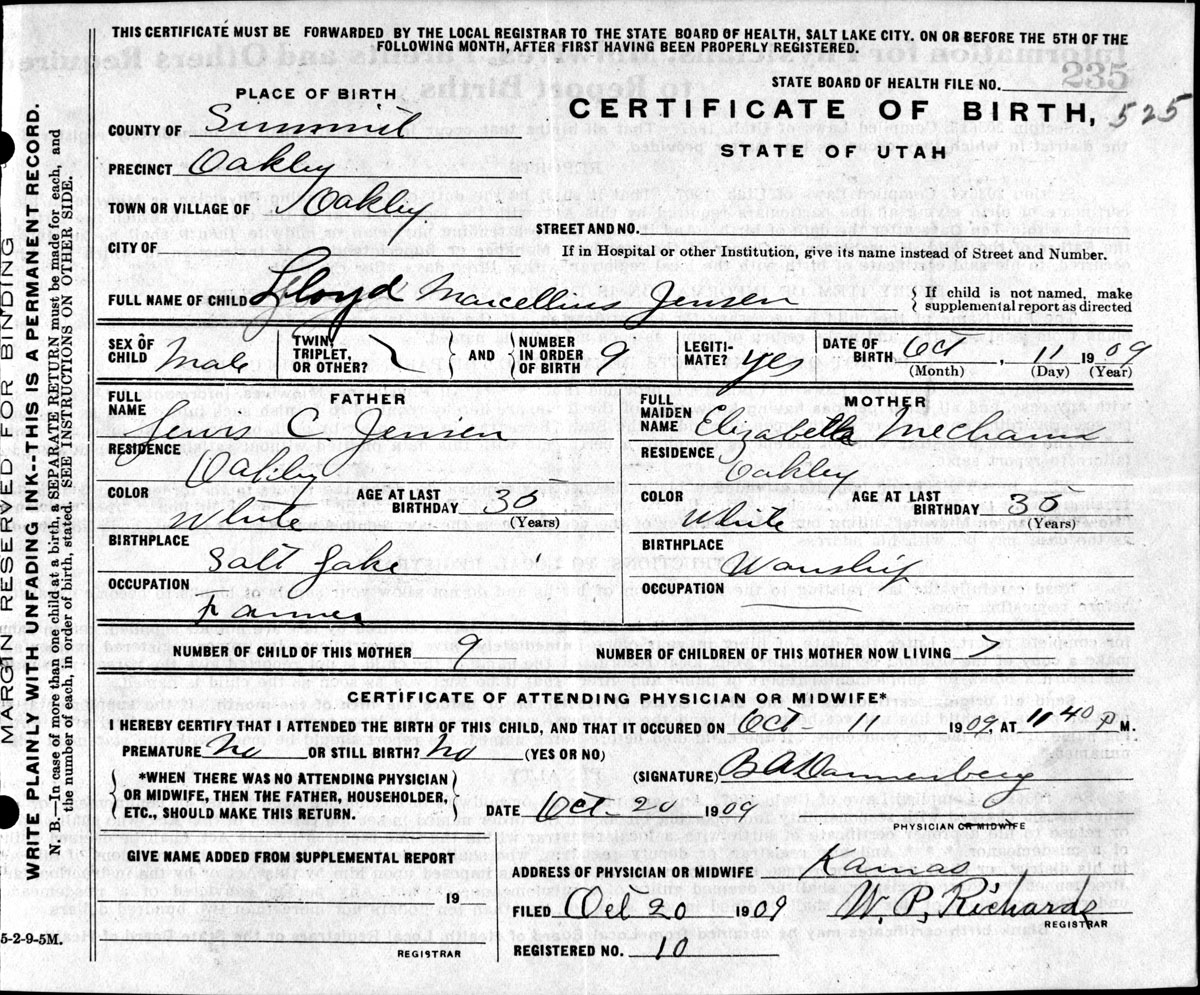 THIS CERTIFICATE MUST BE FORWARDED BY THE LOCAL REGISTRAR TO THE STATE BOARD OF HEALTH, SALT LAKE CITY. ON OR BEFORE THE 5TH OF THE
FOLLOWING MONTH, AFTER FIRST HAVING BEEN PROPERLY REGISTERED.
235
STATE BOARD OF HEALTH FILE NO.
PLACE OF BIRTH
CERTIFICATE OF BIRTH, 525
COUNTY OF Summit
STATE OF UTAH
PRECINCT Oakley
TOWN OR VILLAGE OF Oakley
STREET AND NO.
CITY OF
If in Hospital or other Institution, give its name instead of Street and Number.
FULL NAME OF CHILD Lloyd Marcellius Jensen
If child is not named, make
supplemental report as directed
SEX OF CHILD Male
TWIN, TRIPLET, OR OTHER?
AND NUMBER IN ORDER OF BIRTH 9
LEGITI- MATE? Yes
DATE OF BIRTH Oct, 11 1909
(Month) (Day) (Year)
FATHER
FULL NAME Jens C. Jensen
RESIDENCE Oakley
COLOR White
AGE AT LAST BIRTHDAY 35
(Years)
BIRTHPLACE Salt Lake
OCCUPATION Farmer
MOTHER
FULL MAIDEN NAME Elizabeth Mecham
RESIDENCE Oakley
COLOR White
AGE AT LAST BIRTHDAY 35
(Years)
BIRTHPLACE Wanship
OCCUPATION
NUMBER OF CHILD OF THIS MOTHER 9
NUMBER OF CHILDREN OF THIS MOTHER NOW LIVING 7
CERTIFICATE OF ATTENDING PHYSICIAN OR MIDWIFE*
I HEREBY CERTIFY THAT I ATTENDED THE BIRTH OF THIS CHILD, AND THAT IT OCCURED ON Oct - 11 1909, AT 11 40 P M.
PREMATURE No OR STILL BIRTH? No (YES OR NO)
*WHEN THERE WAS NO ATTENDING PHYSICIAN
OR MIDWIFE, THEN THE FATHER, HOUSEHOLDER,
ETC., SHOULD MAKE THIS RETURN.
(SIGNATURE) B A Dannenberg
DATE Oct 20 1909
PHYSICIAN OR MIDWIFE
GIVE NAME ADDED FROM SUPPLEMENTAL REPORT
19
REGISTRAR
ADDRESS OF PHYSICIAN OR MIDWIFE Kamas
FILED Oct 20 1909 W. P. Richards
REGISTRAR
REGISTERED NO. 10
5-2-9-5M.
MARGIN RESERVED FOR BINDING
WRITE PLAINLY WITH UNFADING INK--THIS IS A PERMANENT RECORD.
N. B.—In case of more than one child at a birth, a SEPARATE RETURN must be made for each, and
the number of each, in order of birth, stated. SEE INSTRUCTIONS ON OTHER SIDE.